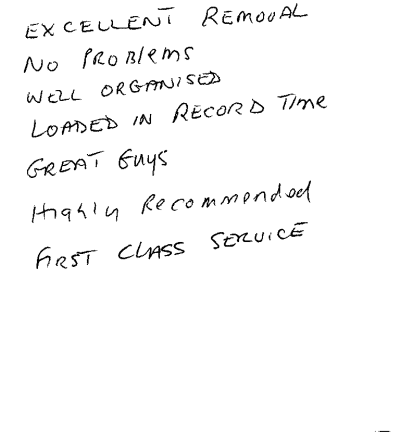 EXCELLENT REMOVAL
NO PROBlEMS
WELL ORGANISED
LOADED IN RECORD TIME
GREAT GUYS
Highly Recommended
FIRST CLASS SERVICE